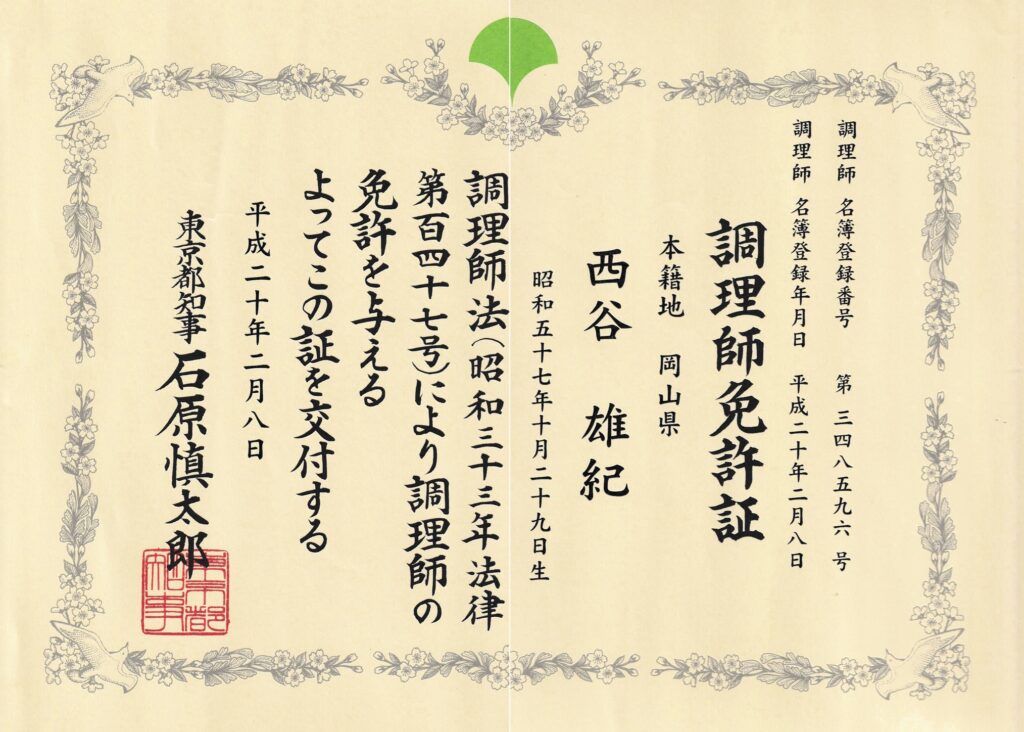 調理師 名簿登録番号 第 三四八五九六 号
調理師 名簿登録年月日 平成二十年二月八日
調理師免許証
本籍地 岡山県
西谷 雄紀
昭和五十七年十月二十九日生
調理師法(昭和三十三年法律
第百四十七号)により調理師の
免許を与える
よってこの証を交付する
平成二十年二月八日
東京都知事 石原慎太郎
東京都知事